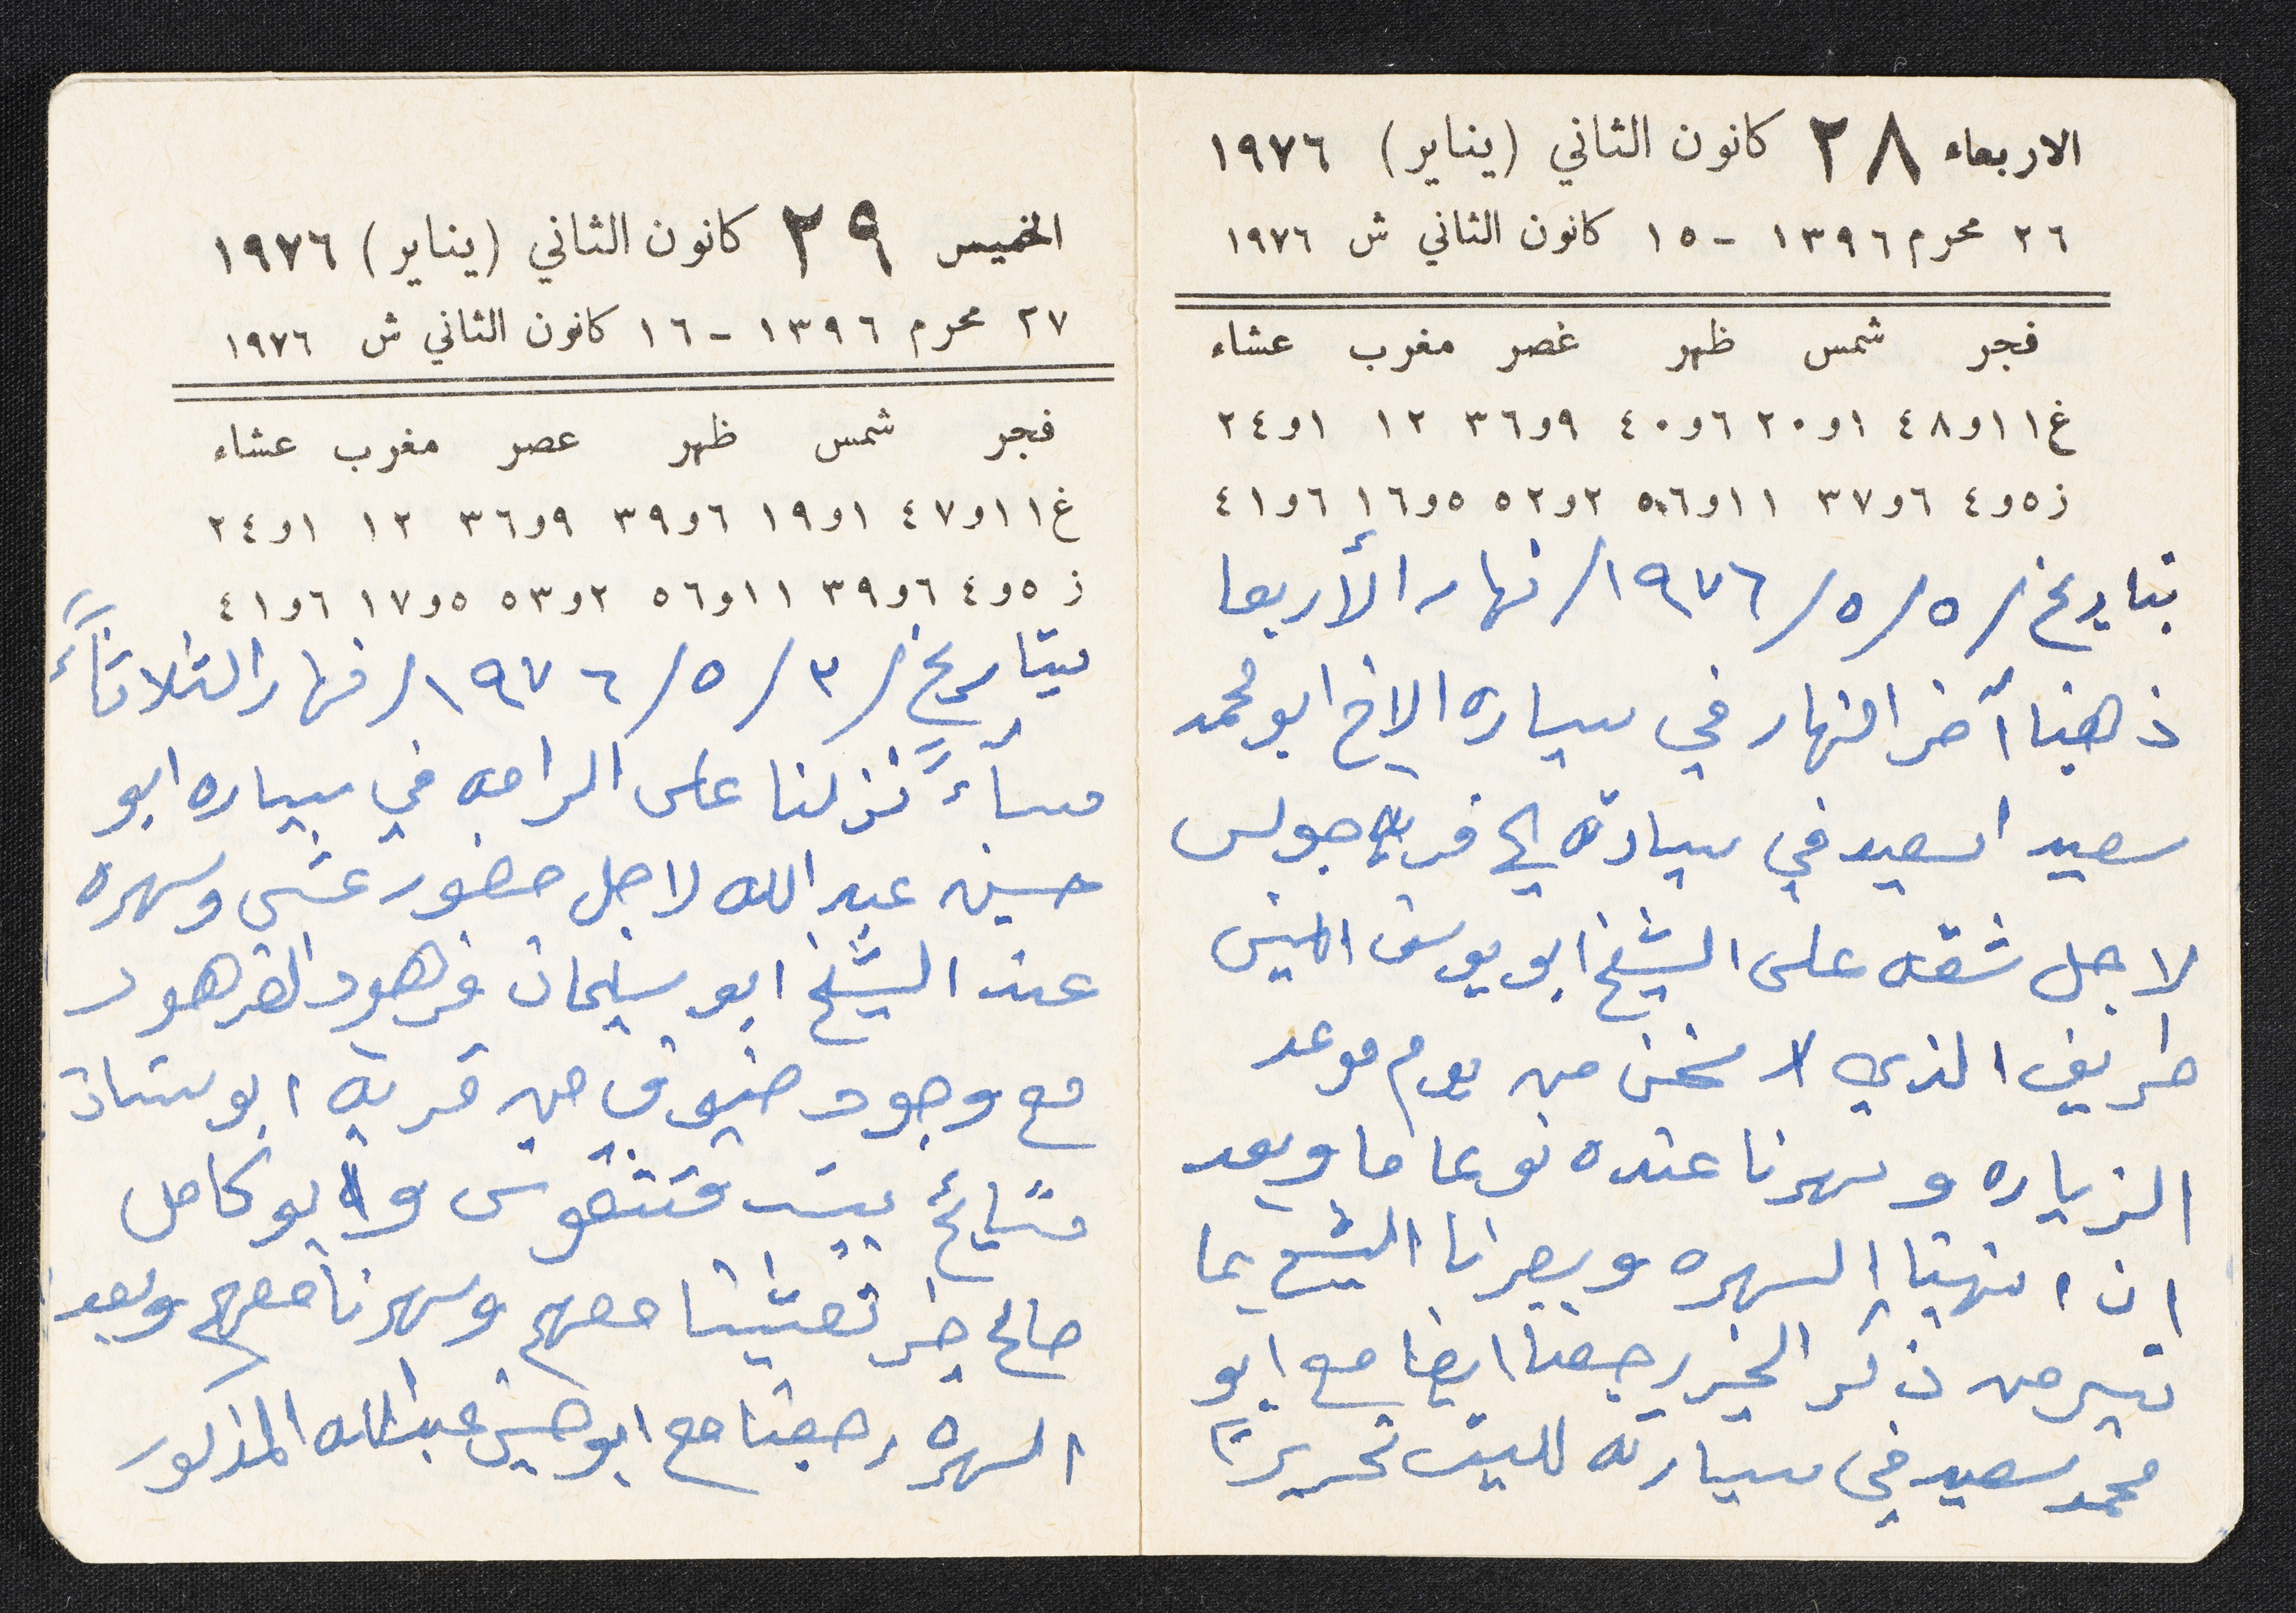 الاربعاء ٢٨ كانون الثاني (يناير) ١٩٧٦
٢٦ محرم ١٣٩٦ - ١٥ كانون الثاني ش ١٩٧٦
فجر شمس ظهر غصر مغرب عشاء
غ ١١و٤٨ ١و٢٠ ٦و٤٠ ٩و٣٦ ١٢ ١و٢٤
ز ٥و٤ ٦و٣٧ ١١و٥٦ ٢و٥٢ ٥و١٦ ٦و٤١
بتاريخ /٥/٥/١٩٧٦/ نهار الأربعا
ذهبنا آخر النهار في سياره الاخ ابو محمد
سعيد اسعيد في سيارته الى قرية جولس
لاجل شقه على الشيخ ابو يوسف امين
طريف الذي لا من يوم موعد
الزياره وسهرنا عنده نوعا ما وبعد
ان انتهينا السهره الشيخ بما
تيسر من ذكر الخير رجعنا ايضا مع ابو
محمد سعيد في سيارته للبيت تحريرًا
الخميس ٢٩ كانون الثاني (يناير) ١٩٧٦
٢٧ محرم ١٣٩٦ - ١٦ كانون الثاني ش ١٩٧٦
فجر شمس ظهر عصر مغرب عشاء
غ ١١و٤٧ ١و١٩ ٦و٣٩ ٩و٣٦ ١٢ ١و٢٤
ز ٥و٤ ٦و٣٩ ١١و٥٦ ٢و٥٣ ٥و١٧ ٦و٤١
بتاريخ /٣/٥/١٩٧٦/ نهار الثلاثاءً
مسأءً نزلنا على الرامه في سياره ابو
حسين عبد الله لاجل حضور عشى وسهره
عند الشيخ ابو سليمان فرهود الفرهود
مع وجود ضيوف من قرية ابو سنان
مشايخ بيت وابو كامل
صالح خير تعشينا معهم وسهرنا معهم وبعد
السهره رجعنا مع ابو حسين عبد الله المذكور